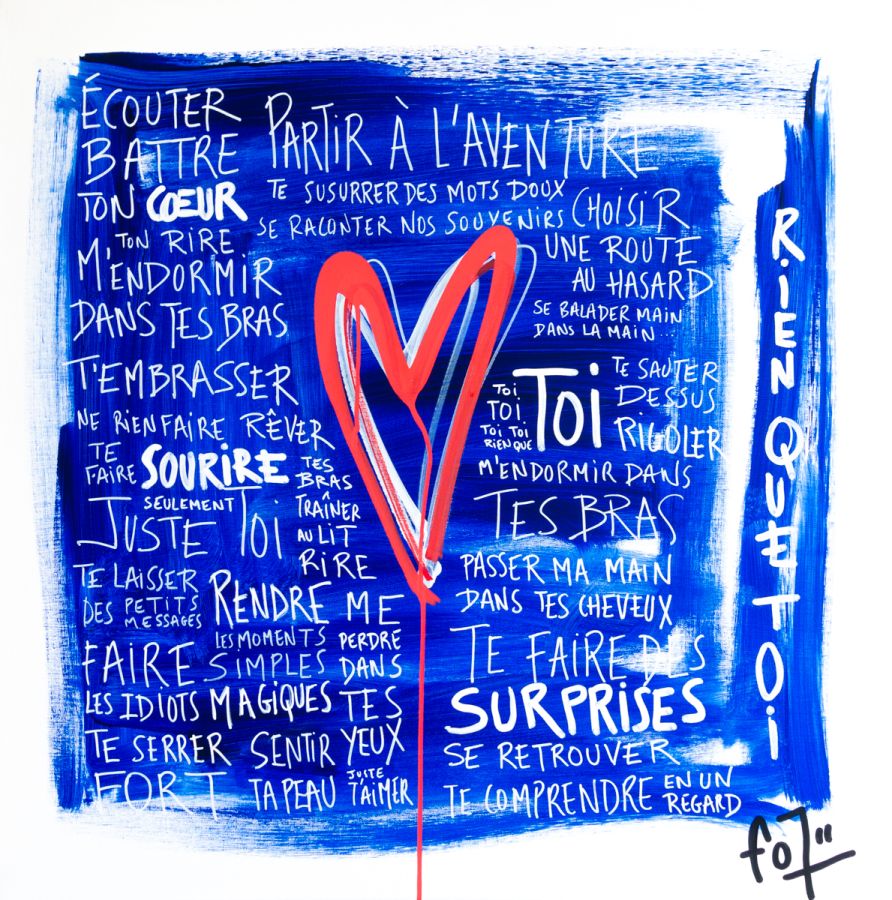 ÉCOUTER
BATTRE
TON CŒUR
TON RIRE
M'ENDORMIR
DANS TES BRAS
T'EMBRASSER
NE RIEN FAIRE RÊVER
TE
FAIRE SOURIRE
SEULEMENT
JUSTE TOI
TES
BRAS
TRAÎNER
AU LIT
RIRE
TE LAISSER
DES PETITS
MESSAGES
RENDRE
LES MOMENTS
SIMPLES
MAGIQUES
FAIRE
LES IDIOTS
TE SERRER
FORT
SENTIR
TA PEAU
ME
PERDRE
DANS
TES
YEUX
JUSTE
T'AIMER
PARTIR À L'AVENTURE
TE SUSURRER DES MOTS DOUX
SE RACONTER NOS SOUVENIRS
CHOISIR
UNE ROUTE
AU HASARD
SE BALADER MAIN
DANS LA MAIN...
TOI
TOI
TOI TOI
RIEN QUE
TOI
TE SAUTER
DESSUS
RIGOLER
M'ENDORMIR DANS
TES BRAS
PASSER MA MAIN
DANS TES CHEVEUX
TE FAIRE DES
SURPRISES
SE RETROUVER
TE COMPRENDRE EN UN
REGARD
RIEN QUE TOI